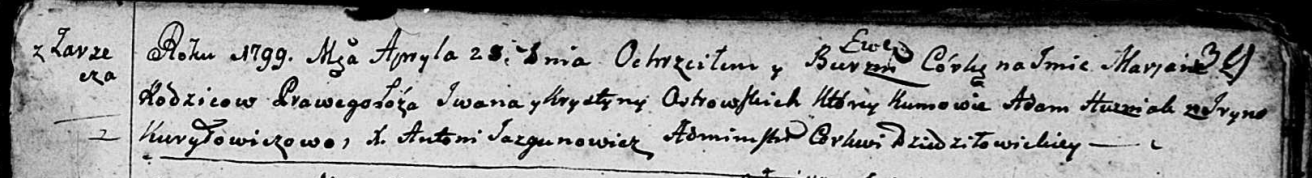 z Zarze
cza
Roku 1799. Mca Apryla 28. dnia Ochrzciłem y Ewę Córkę na Imie Marjann 39
Rodzicow Prawegołoża Iwana y Krystyny Ostrowskich Którey Kumowie Adam Huzniak z Iryno
2
Kuryłowiczowo, X. Antoni Jazgunowicz Administr Cerkwi Dziedziłowickiey